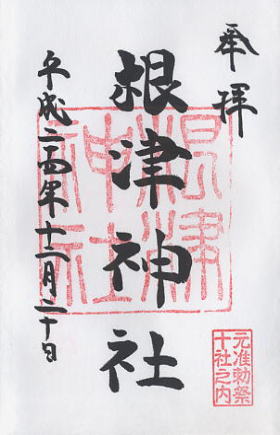 奉拝
根津神社
平成二十四年十二月二十日
根津神社
元准勅祭
十社之内